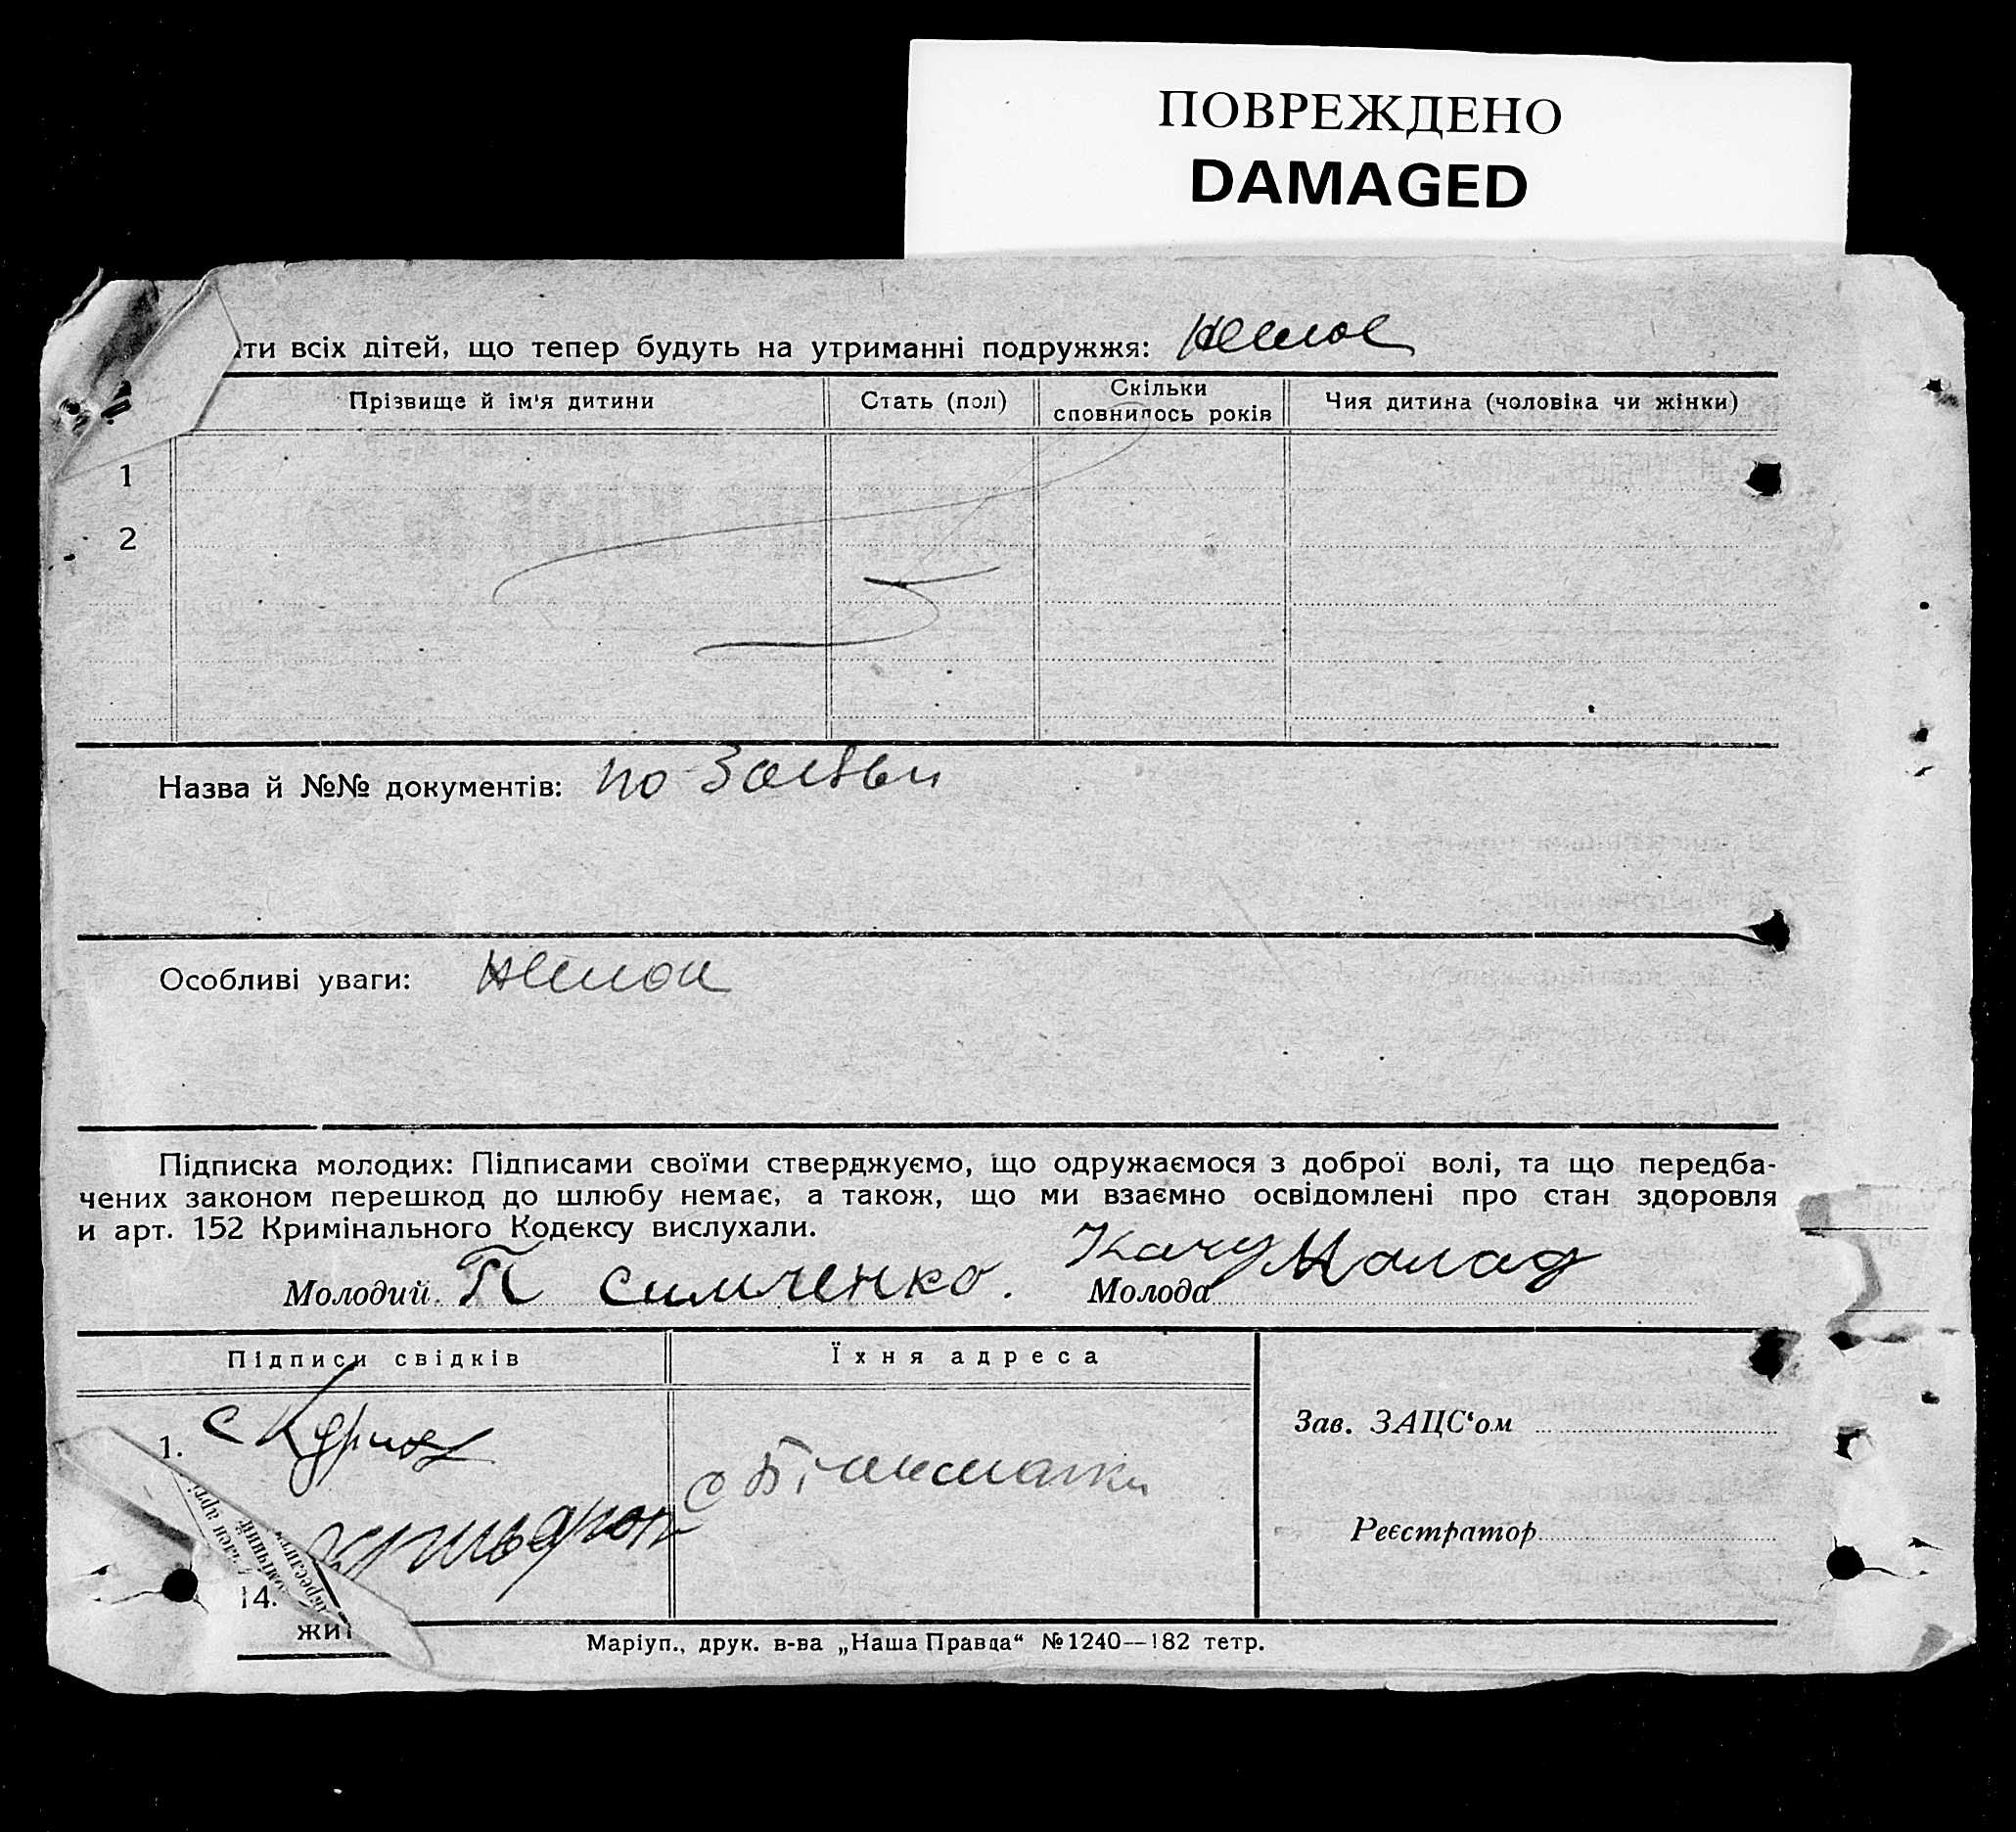 ПОВРЕЖДЕНО
DAMAGED
ти всіх дітей, що тепер будуть на утриманні подружжя: немає
Прізвище й ім'я дитини Стать (пол) Скільки сповнилось років Чия дитина (чоловіка чи жінки)
1
2
Назва й №№ документів: по заяви
Особливі уваги: немає
Підписка молодих: Підписами своїми стверджуємо, що одружаємося з доброї волі, та що передба-
чених законом перешкод до шлюбу немає, а також, що ми взаємно освідомлені про стан здоровля
и арт. 152 Кримінального Кодексу вислухали.
Молодий П Симченко. Молода
Підписи свідків Їхня адреса
Зав. ЗАЦС'ом
1.
с
Реєстратор
14.
жит
Маріуп., друк. в-ва „Наша Правда“ №1240—182 тетр.